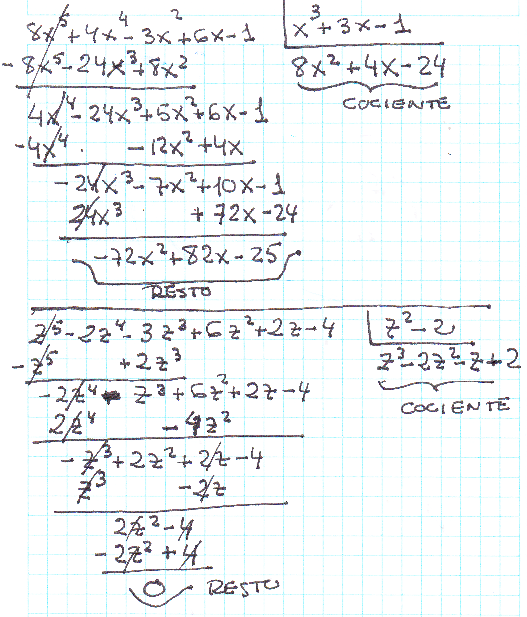 8x⁵+4x⁴-3x²+6x-1 | x³+3x-1
-8x⁵-24x³+8x² 8x²+4x-24
COCIENTE
4x⁴-24x³+5x²+6x-1
-4x⁴ -12x²+4x
-24x³-7x²+10x-1
24x³ +72x-24
-72x²+82x-25
RESTO
z⁵-2z⁴-3z³+6z²+2z-4 | z²-2
-z⁵ +2z³ z³-2z²-z+2
COCIENTE
-2z⁴-z³+6z²+2z-4
2z⁴ -4z²
-z³+2z²+2z-4
z³ -2z
2z²-4
-2z²+4
0 RESTO